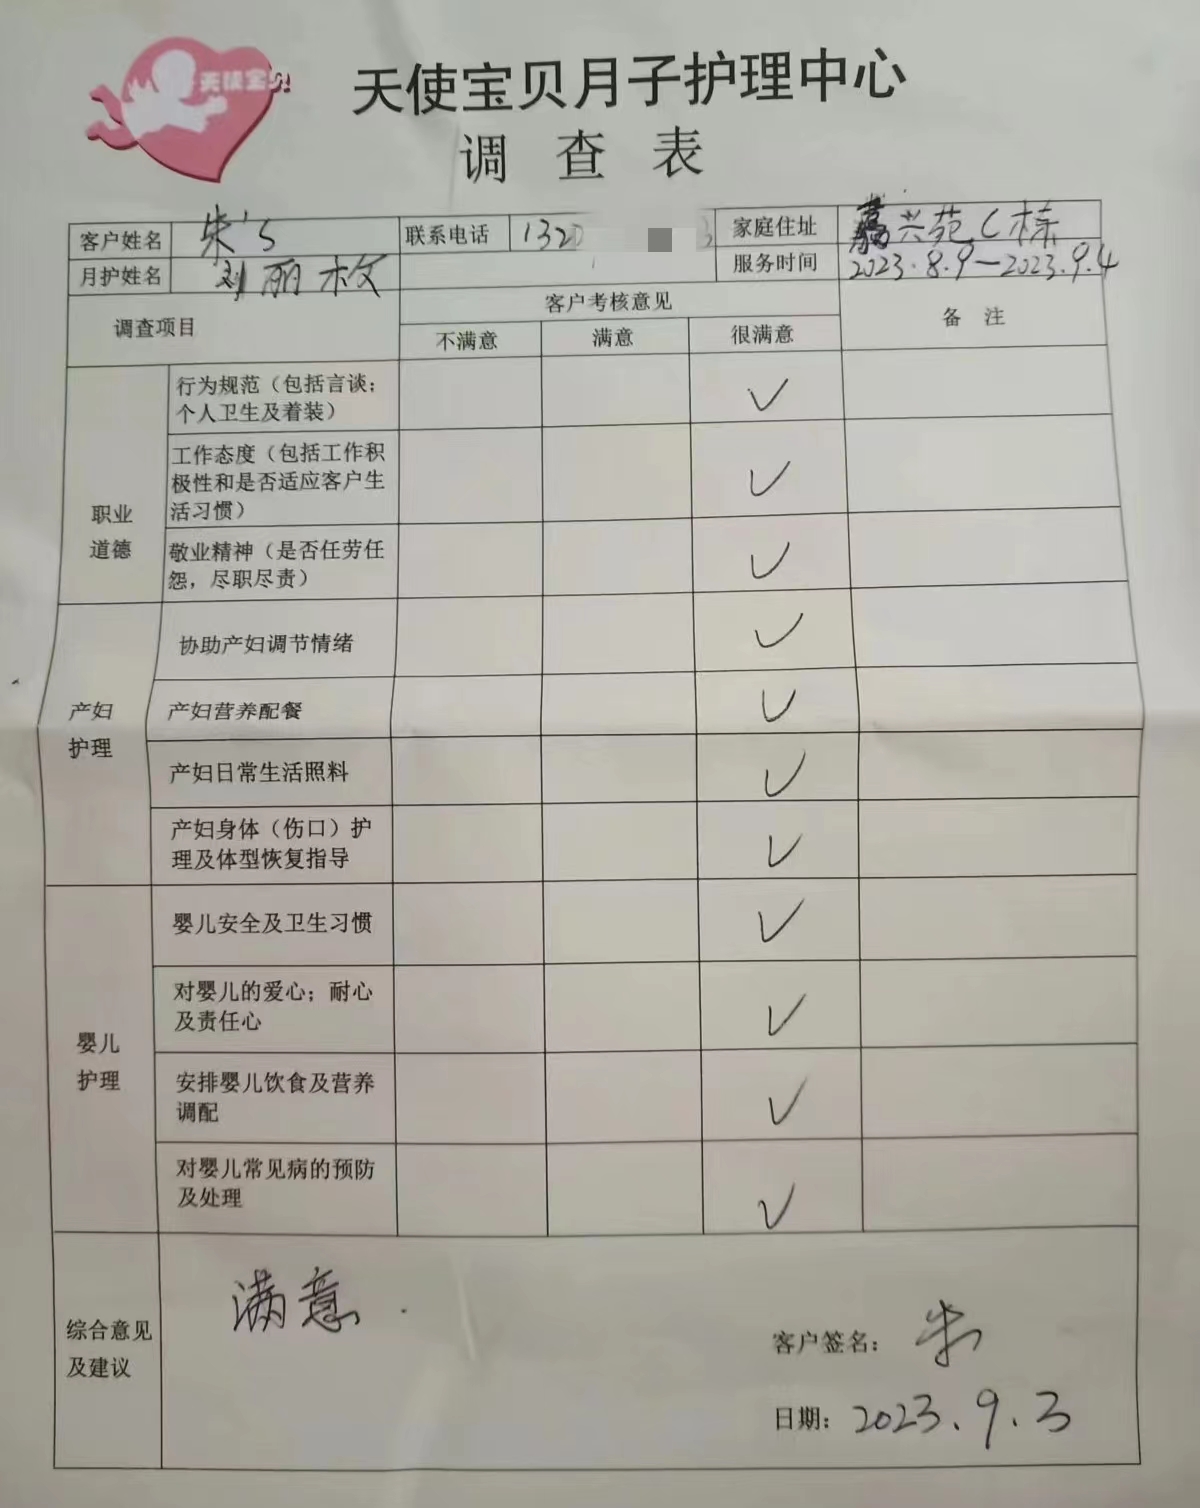 天使宝贝
天使宝贝月子护理中心
调查表
客户姓名 朱's 联系电话 132 3 家庭住址 嘉兴苑C栋
月护姓名 刘丽枚 服务时间 2023.8.9—2023.9.4
调查项目 客户考核意见 备 注
不满意 满意 很满意
职业
道德
行为规范（包括言谈；
个人卫生及着装） ✓
工作态度（包括工作积
极性和是否适应客户生
活习惯） ✓
敬业精神（是否任劳任
怨，尽职尽责） ✓
产妇
护理
协助产妇调节情绪 ✓
产妇营养配餐 ✓
产妇日常生活照料 ✓
产妇身体（伤口）护
理及体型恢复指导 ✓
婴儿
护理
婴儿安全及卫生习惯 ✓
对婴儿的爱心；耐心
及责任心 ✓
安排婴儿饮食及营养
调配 ✓
对婴儿常见病的预防
及处理 ✓
综合意见
及建议
满意.
客户签名：朱
日期：2023.9.3